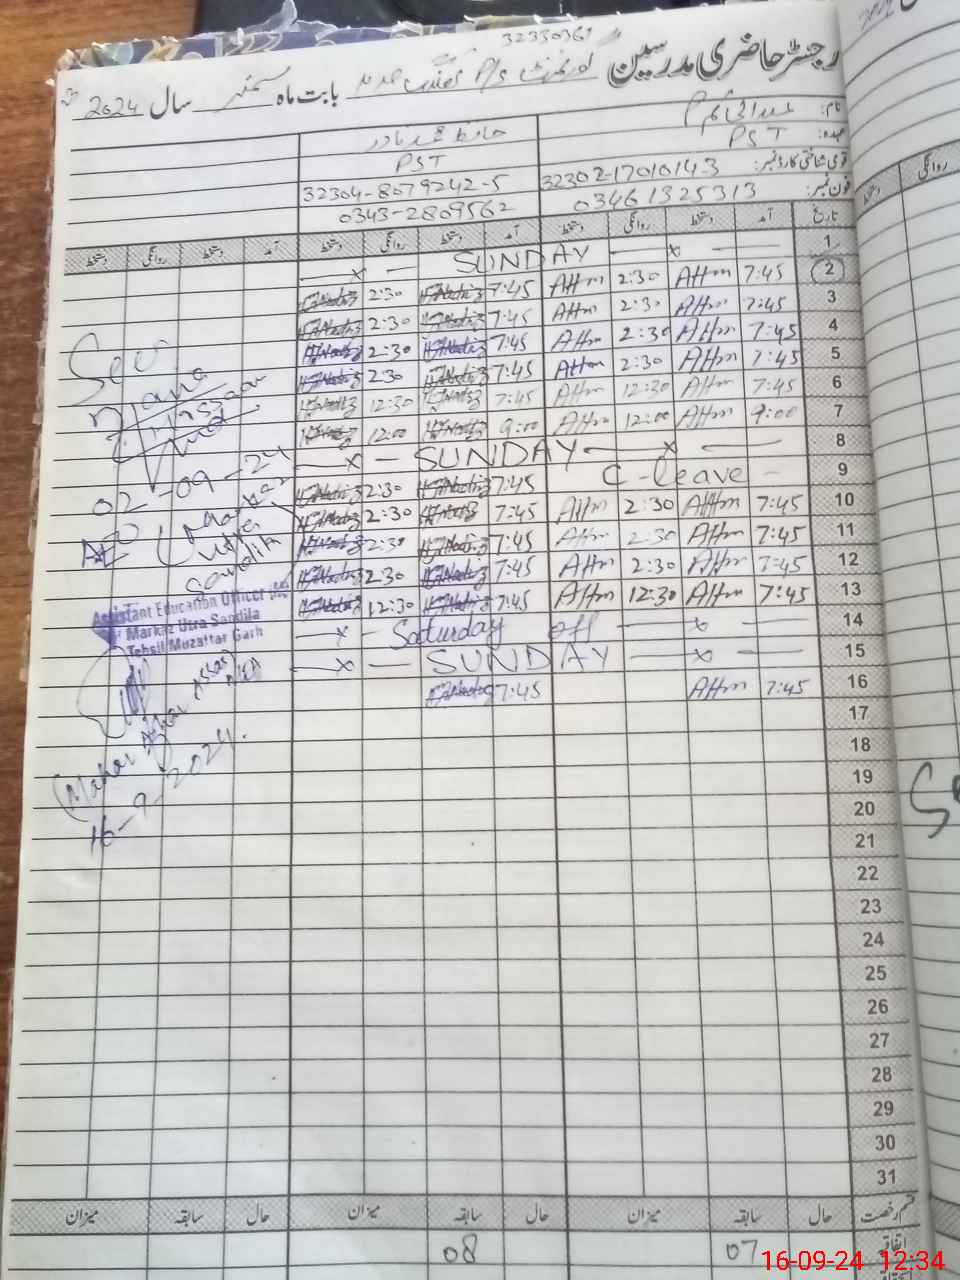 32330361
رجسٹر حاضری مدرسین گورنمنٹ P/S بابت ماہ ستمبر سال 2024
نام:
حافظ محمد نادر
عہدہ: PST
PST
قومی شناختی کارڈ نمبر: 32302-1701014-3
32304-8079242-5
فون نمبر: 03461325313
0343-2809562
تاریخ آمد دستخط روانگی دستخط آمد دستخط روانگی دستخط آمد دستخط روانگی دستخط
1 SUNDAY
2 7:45 AHm 2:30 AHm 7:45 2:30
3 7:45 AHm 2:30 AHm 7:45 2:30
4 7:45 AHm 2:30 AHm 7:45 2:30
5 7:45 AHm 2:30 AHm 7:45 2:30
6 7:45 AHm 12:30 AHm 7:45 12:30
7 9:00 AHm 12:00 AHm 9:00 12:00
8 SUNDAY
9 C-leave 7:45 2:30
10 7:45 AHm 2:30 AHm 7:45 2:30
11 7:45 AHm 2:30 AHm 7:45 2:30
12 7:45 AHm 2:30 AHm 7:45 2:30
13 7:45 AHm 12:30 AHm 7:45 12:30
14 Saturday off
15 SUNDAY
16 7:45 AHm 7:45
17
18
19
20
21
22
23
24
25
26
27
28
29
30
31
See
02-09-24
AEO Markaz
Utra
Sandila
Assistant Education Officer
Markaz Utra Sandila
Tehsil Muzaffar Garh
16-9-2024.
قسم رخصت حال سابقہ میزان حال سابقہ میزان حال سابقہ میزان
اتفاقیہ 07 08
روانگی
دستخط
16-09-24 12:34